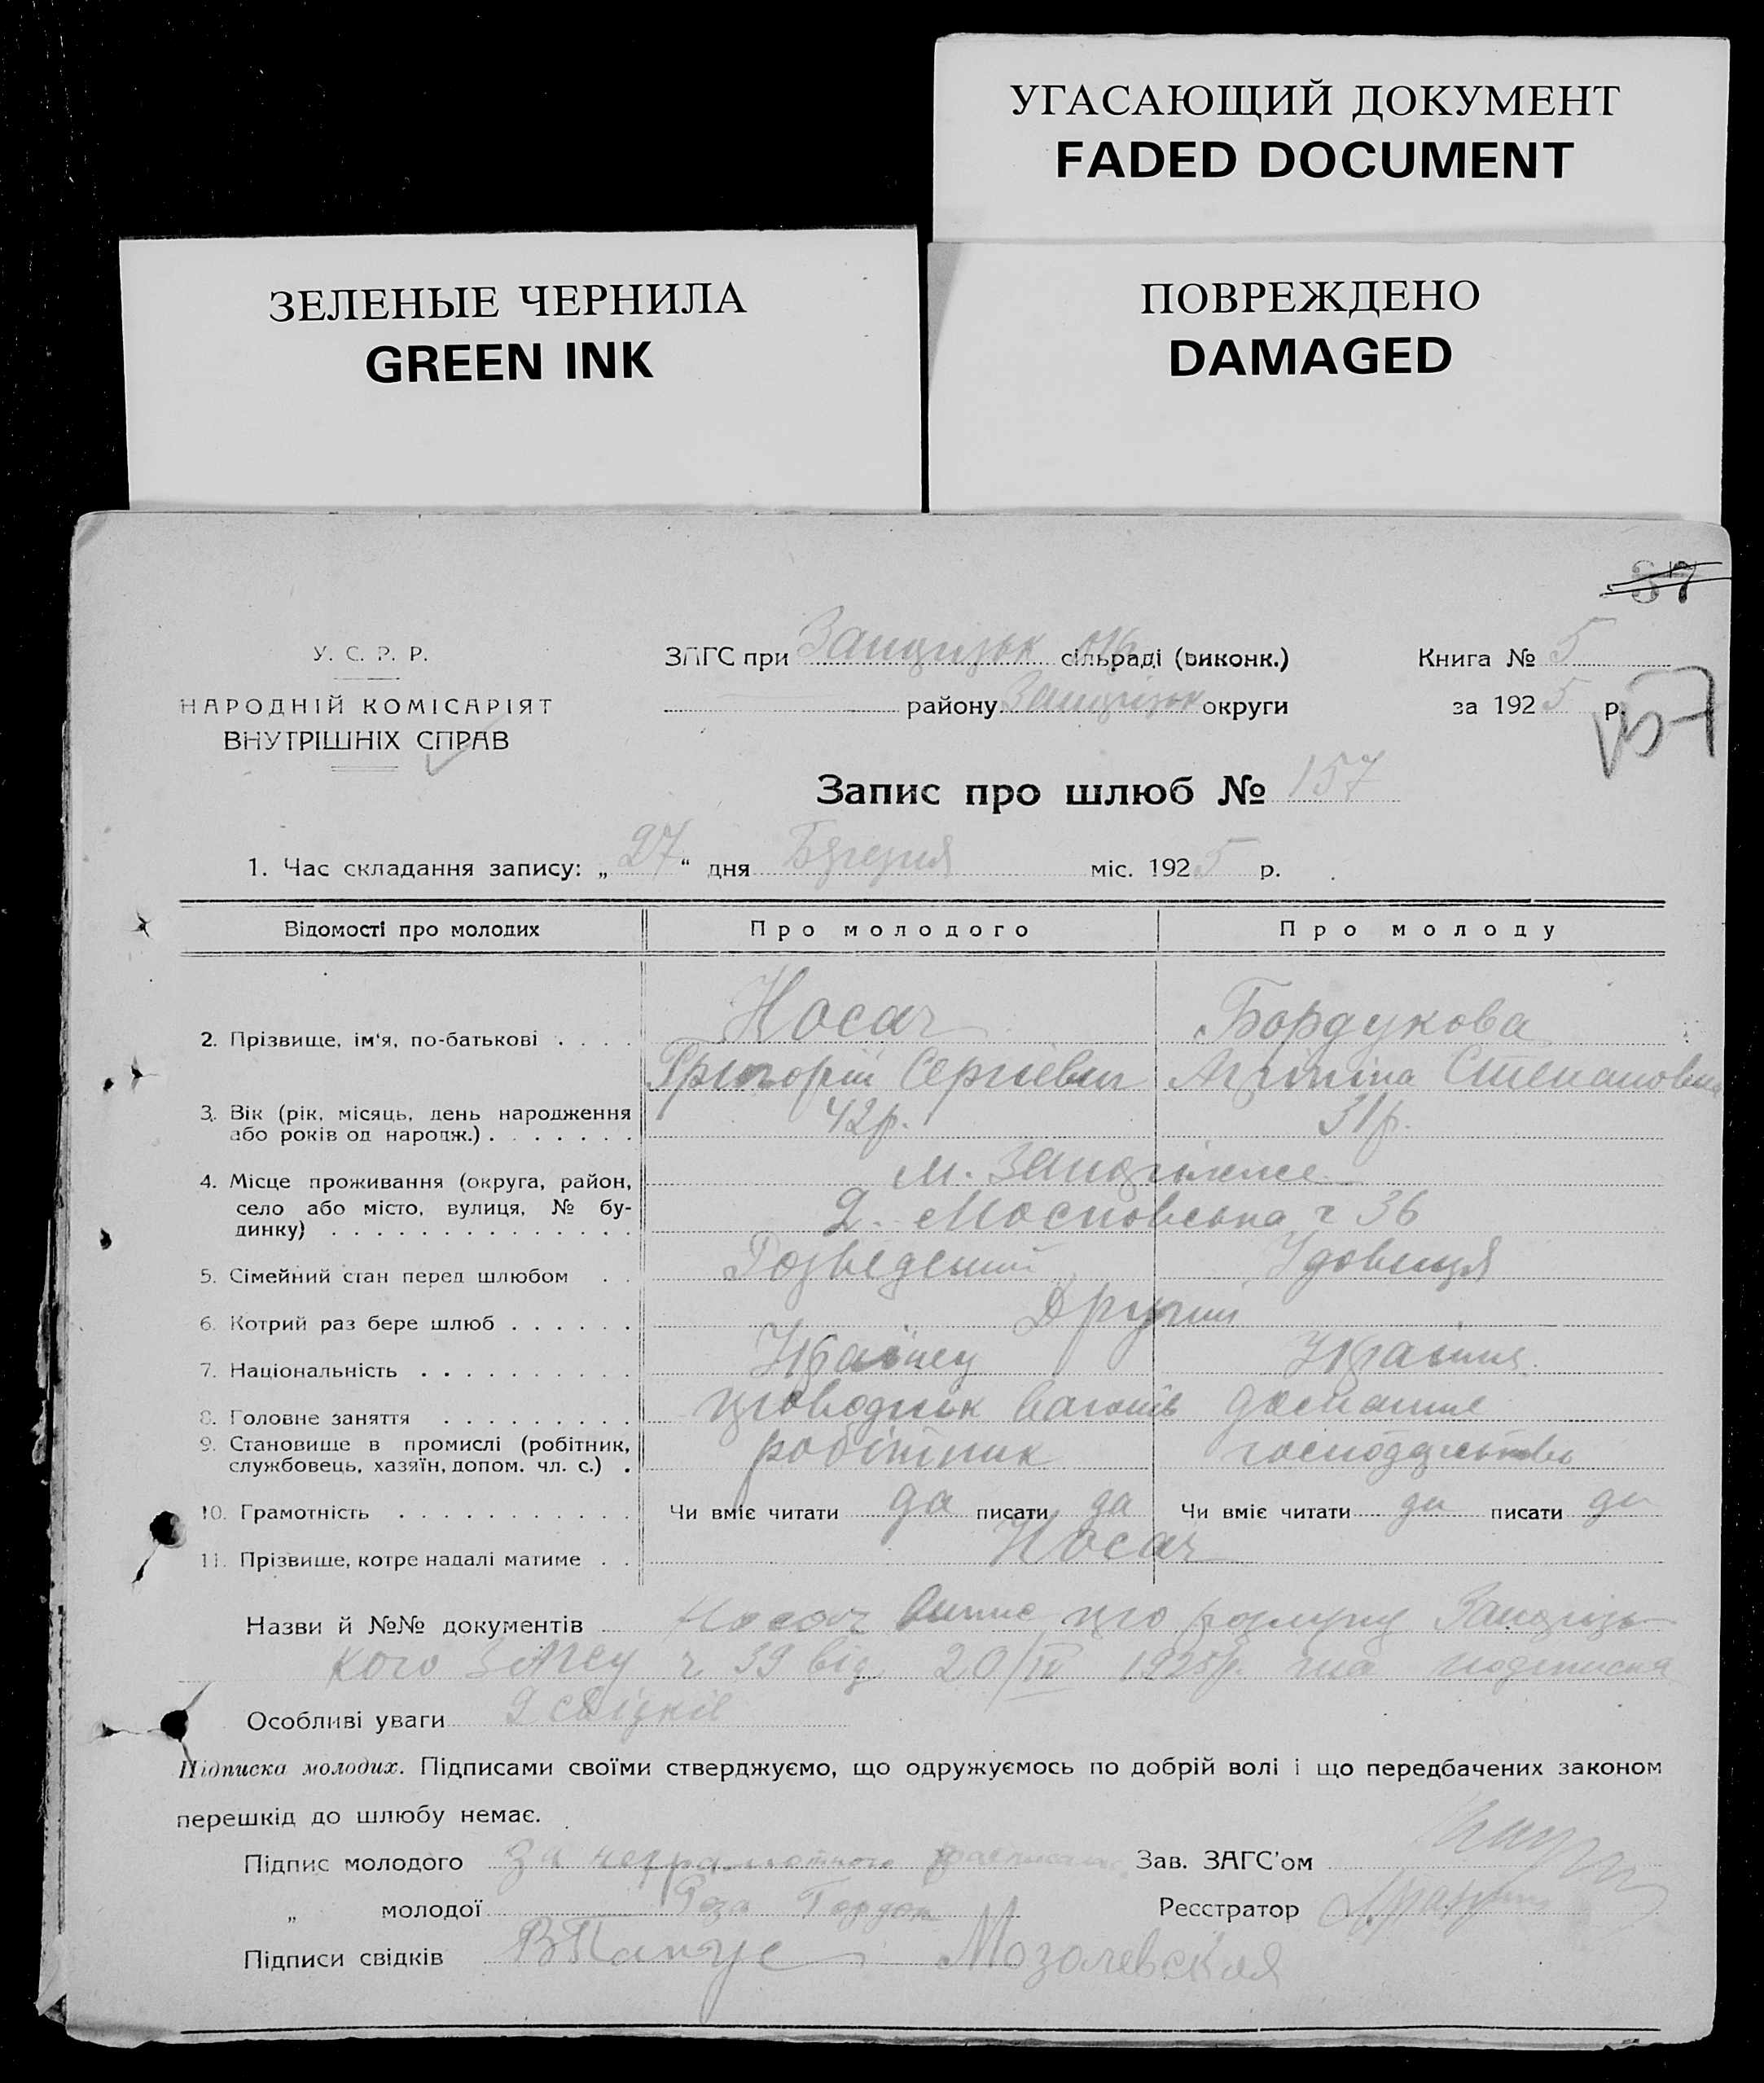 УГАСАЮЩИЙ ДОКУМЕНТ
FADED DOCUMENT
ЗЕЛЕНЫЕ ЧЕРНИЛА
GREEN INK
ПОВРЕЖДЕНО
DAMAGED
37
У. С. Р. Р.
НАРОДНІЙ КОМІСАРІЯТ
ВНУТРІШНІХ СПРАВ
ЗАГС при сільраді (виконк.)
району округи
Книга № 5
за 1925 р.
157
Запис про шлюб № 157
1. Час складання запису: „27“ дня міс. 1925 р.
Відомості про молодих Про молодого Про молоду
2. Прізвище, ім'я, по-батькові . . . . Носач Бордукова
Григорій Сергієвич Степановна
3. Вік (рік, місяць, день народження
або років од народж.) . . . . . . . 42р. 31р.
4. Місце проживання (округа, район,
село або місто, вулиця, № бу-
динку) . . . . . . . . . . . . . .
м. Запоріжже
Московська ч 36
5. Сімейний стан перед шлюбом . . Розведений Удовиця
6. Котрий раз бере шлюб . . . . . . Другий
7. Національність . . . . . . . . . . Українец Українка
8. Головне заняття . . . . . . . . . проводник вагонів домашнє
9. Становище в промислі (робітник,
службовець, хазяїн, допом. чл. с.) . робітник господарство
10. Грамотність . . . . . . . . . . . Чи вміє читати да писати да Чи вміє читати да писати да
11. Прізвище, котре надалі матиме . . Носач
Назви й №№ документів Носач Випис про розлуку Запорізь-
кого ЗАГСу ч 39 від 20/IV 1925р. та подписка
Особливі уваги 2 свідків
Підписка молодих. Підписами своїми стверджуємо, що одружуємось по добрій волі і що передбачених законом
перешкід до шлюбу немає.
Підпис молодого За неграмотного
„ молодої Роза Гордон
Підписи свідків Мозолевская
Зав. ЗАГС'ом
Реєстратор